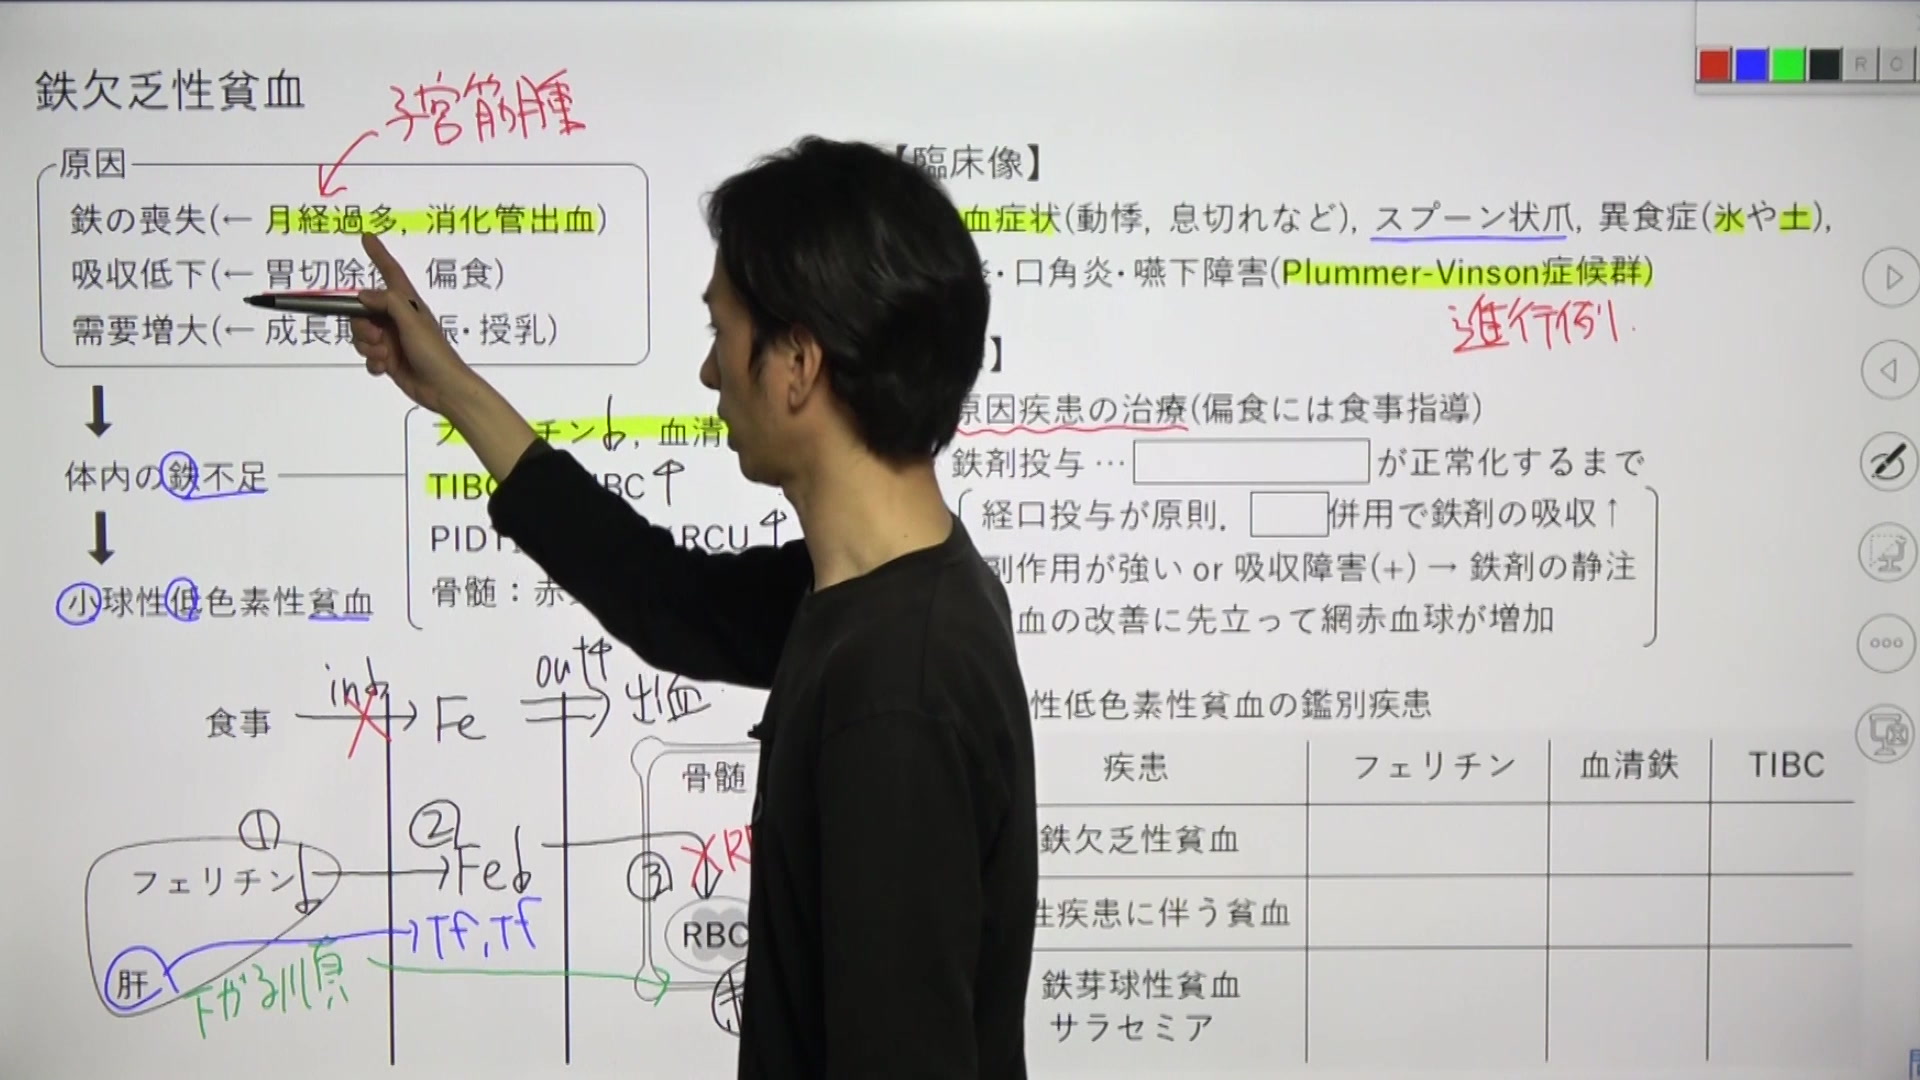 鉄欠乏性貧血
子宮筋腫
原因
鉄の喪失(← 月経過多, 消化管出血)
吸収低下(← 胃切除後 偏食)
需要増大(← 成長期 娠・授乳)
体内の鉄不足
小球性低色素性貧血
フ チン↓, 血清
TIBC IBC↑
PIDT RCU↑
骨髄：赤
【臨床像】
血症状(動悸, 息切れなど), スプーン状爪, 異食症(氷や土),
炎・口角炎・嚥下障害(Plummer-Vinson症候群)
進行例.
】
原因疾患の治療(偏食には食事指導)
鉄剤投与… が正常化するまで
経口投与が原則, 併用で鉄剤の吸収↑
副作用が強い or 吸収障害(+) → 鉄剤の静注
血の改善に先立って網赤血球が増加
食事 in↓ Fe out↑ 出血
① フェリチン↓ ② Fe↓ ③
骨髄
RBC
肝 Tf, Tf
下がる順
性低色素性貧血の鑑別疾患
疾患 フェリチン 血清鉄 TIBC
鉄欠乏性貧血
性疾患に伴う貧血
鉄芽球性貧血
サラセミア
R C